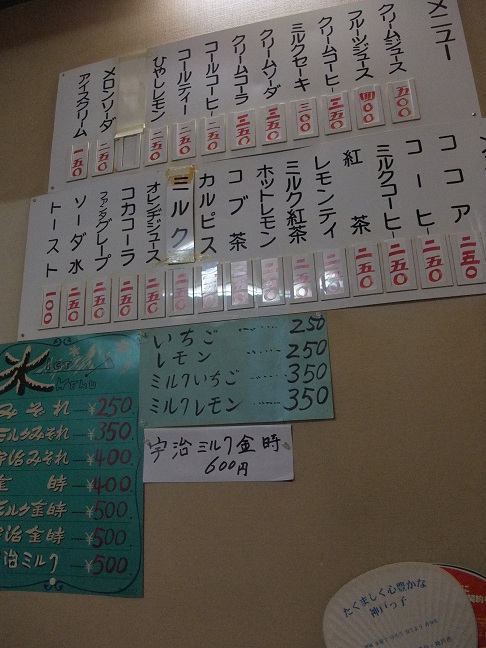 メニュー
クリームジュース 五〇〇
フルーツジュース 四〇〇
クリームコーヒー 三五〇
ミルクセーキ 三〇〇
クリームソーダ 三五〇
クリームコーラ 三五〇
コールコーヒー 二五〇
コールティー 二五〇
ひやしレモン 二五〇
メロンソーダ 二五〇
アイスクリーム 一五〇
ココア 二五〇
コーヒー 二五〇
ミルクコーヒー 二五〇
紅茶 二五〇
レモンティ 二五〇
ミルク紅茶 二五〇
ホットレモン 二五〇
コブ茶 二五〇
カルピス 二五〇
ミルク 二五〇
オレンヂジュース 二五〇
コカコーラ 二五〇
ファンタグレープ 二五〇
ソーダ水 二五〇
トースト 一〇〇
いちご 250
レモン 250
ミルクいちご 350
ミルクレモン 350
宇治ミルク金時
600円
氷
MENU
みぞれ ¥250
ミルクみぞれ ¥350
宇治みぞれ ¥400
金時 ¥400
ミルク金時 ¥500
宇治金時 ¥500
宇治ミルク ¥500
たくましく心豊かな
神戸っ子